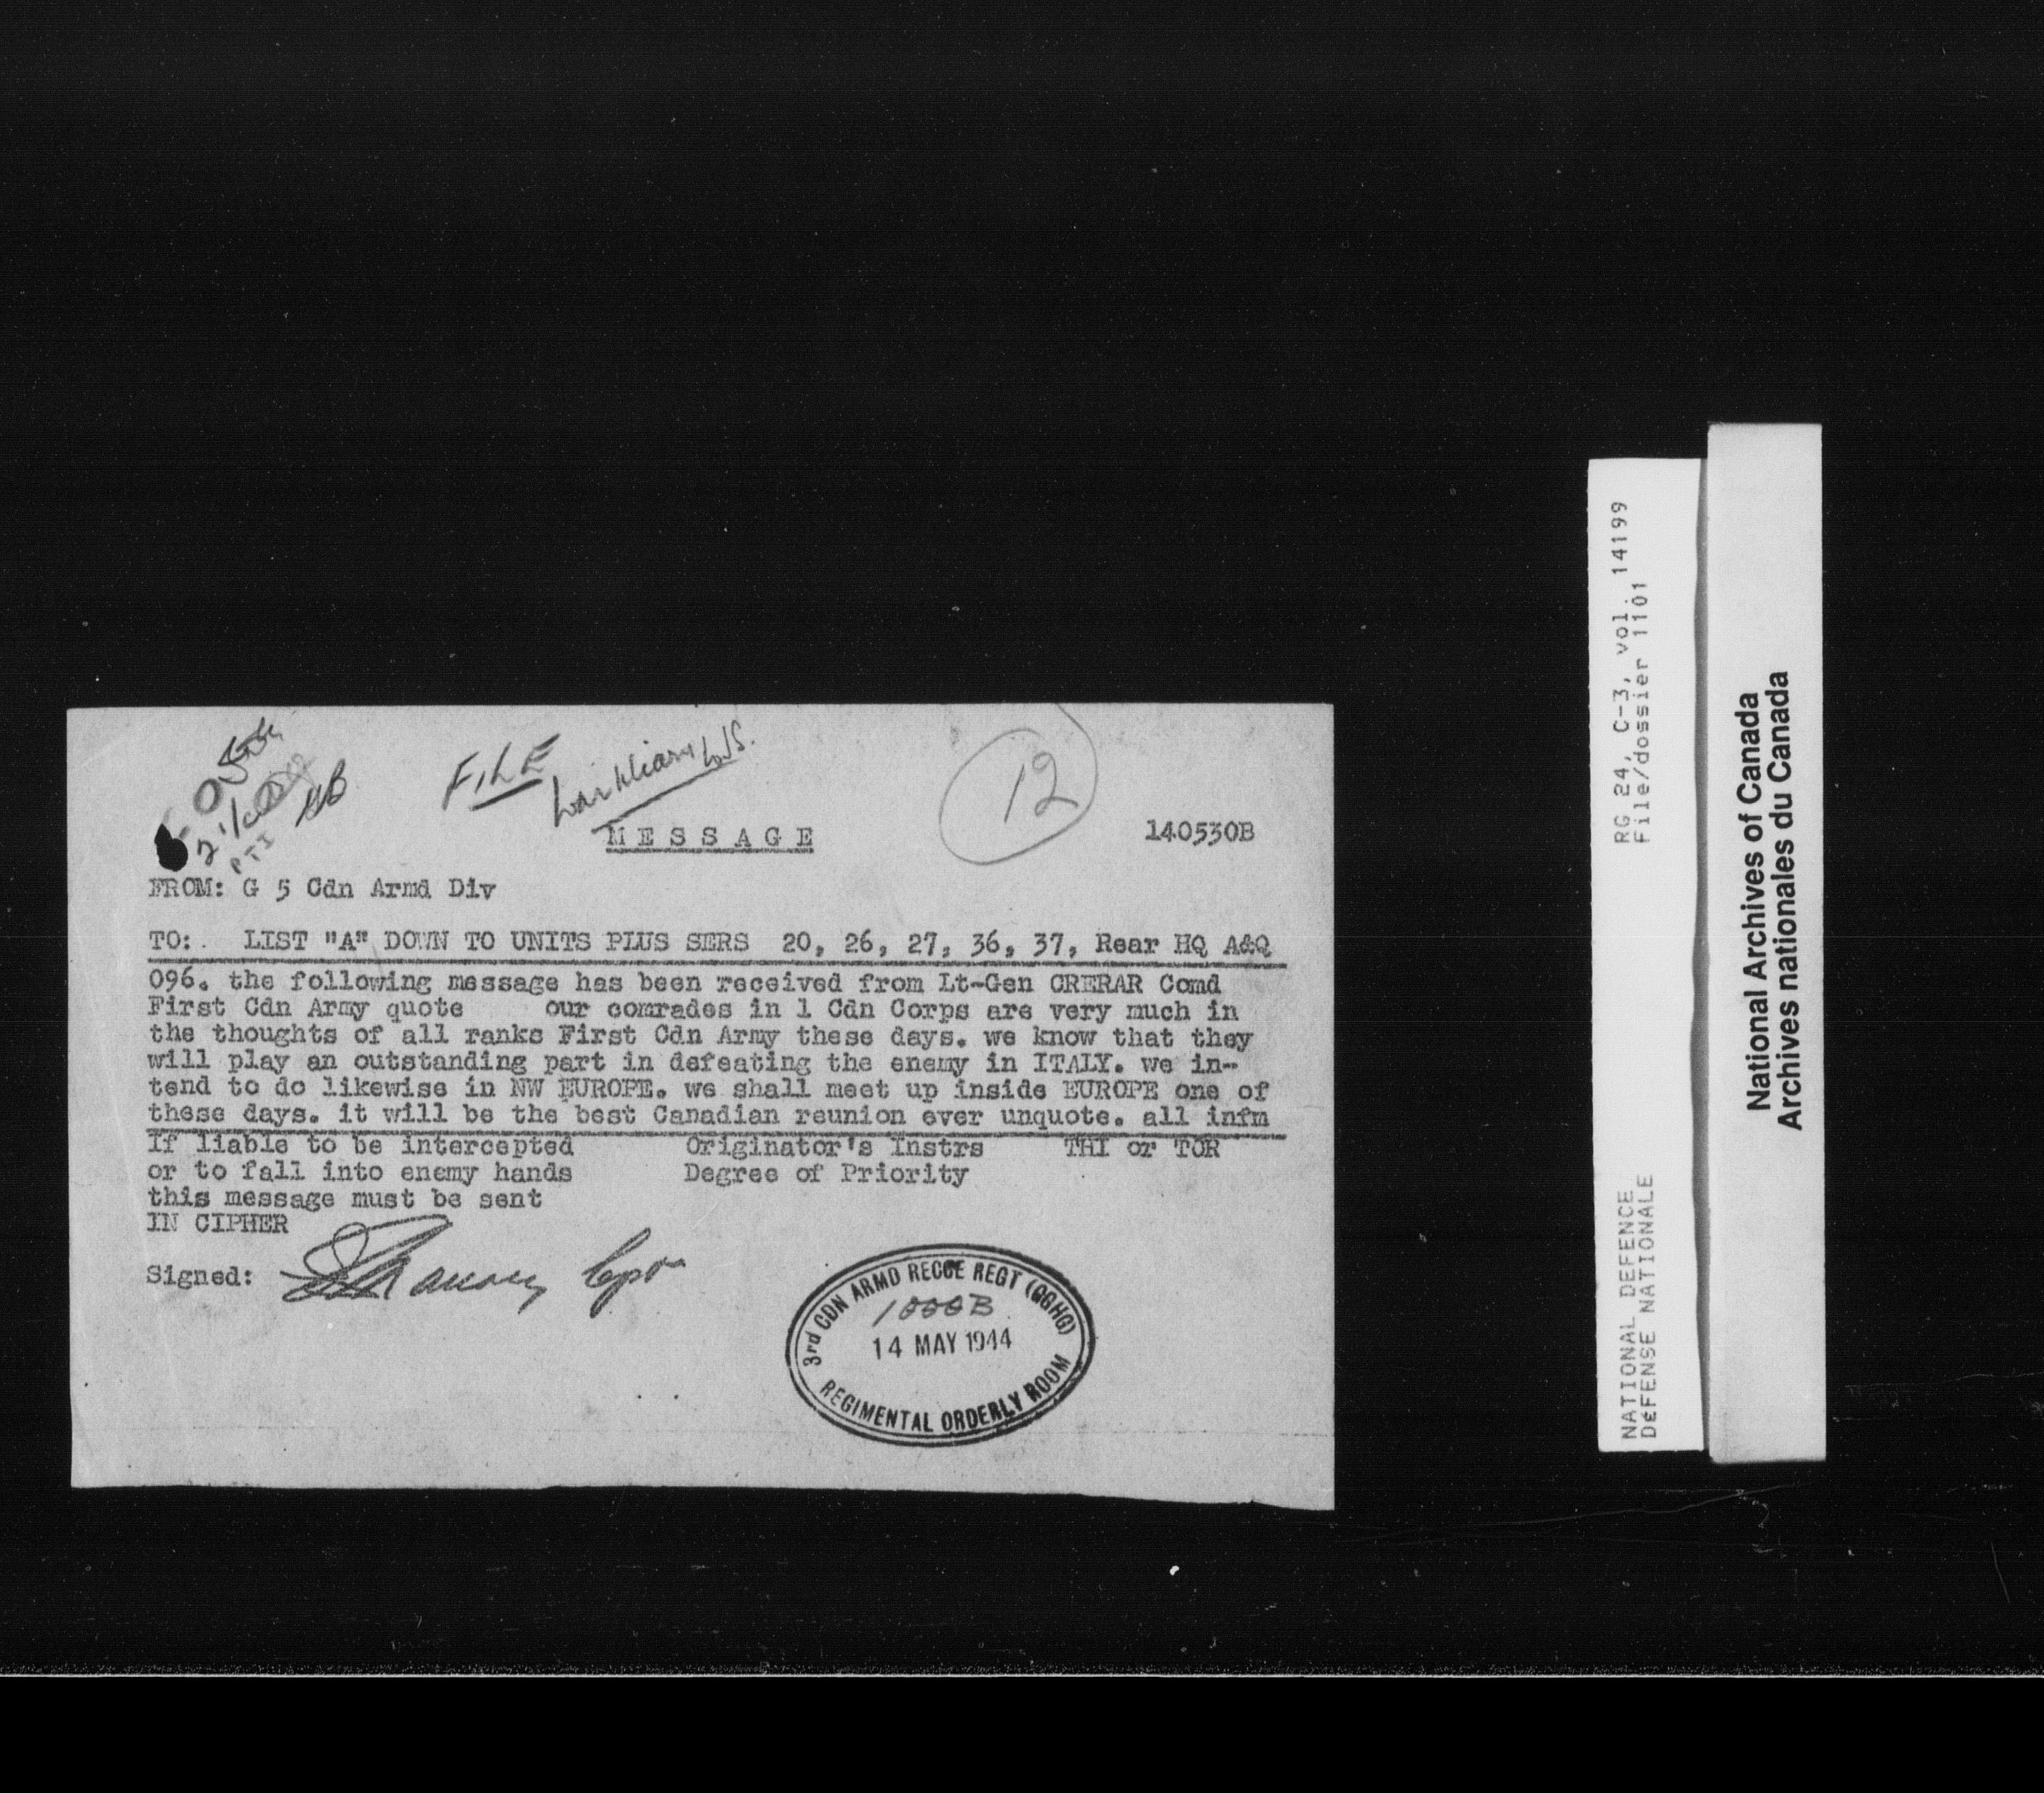 FILE
War Diary
12
MESSAGE
140530B
FROM: G 5 Cdn Armd Div
TO: LIST "A" DOWN TO UNITS PLUS SERS 20, 26, 27, 36, 37, Rear HQ A&Q
096. the following message has been received from Lt-Gen CRERAR Comd
First Cdn Army quote our comrades in 1 Cdn Corps are very much in
the thoughts of all ranks First Cdn Army these days. we know that they
will play an outstanding part in defeating the enemy in ITALY. we in-
tend to do likewise in NW EUROPE. we shall meet up inside EUROPE one of
these days. it will be the best Canadian reunion ever unquote. all infm
If liable to be intercepted
or to fall into enemy hands
this message must be sent
IN CIPHER
Originator's Instrs
Degree of Priority
THI or TOR
Signed:
3rd CDN ARMD RECCE REGT (GGHG)
1000B
14 MAY 1944
REGIMENTAL ORDERLY ROOM
RG 24, C-3, vol. 14199
File/dossier 1101
NATIONAL DEFENCE
DéFENSE NATIONALE
National Archives of Canada
Archives nationales du Canada